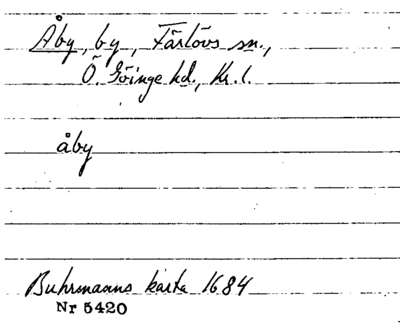 Åby, by, Färlövs sn.,
Ö. Göinge hd., Kr. l.
åby
Buhrmanns karta 1684
Nr 5420